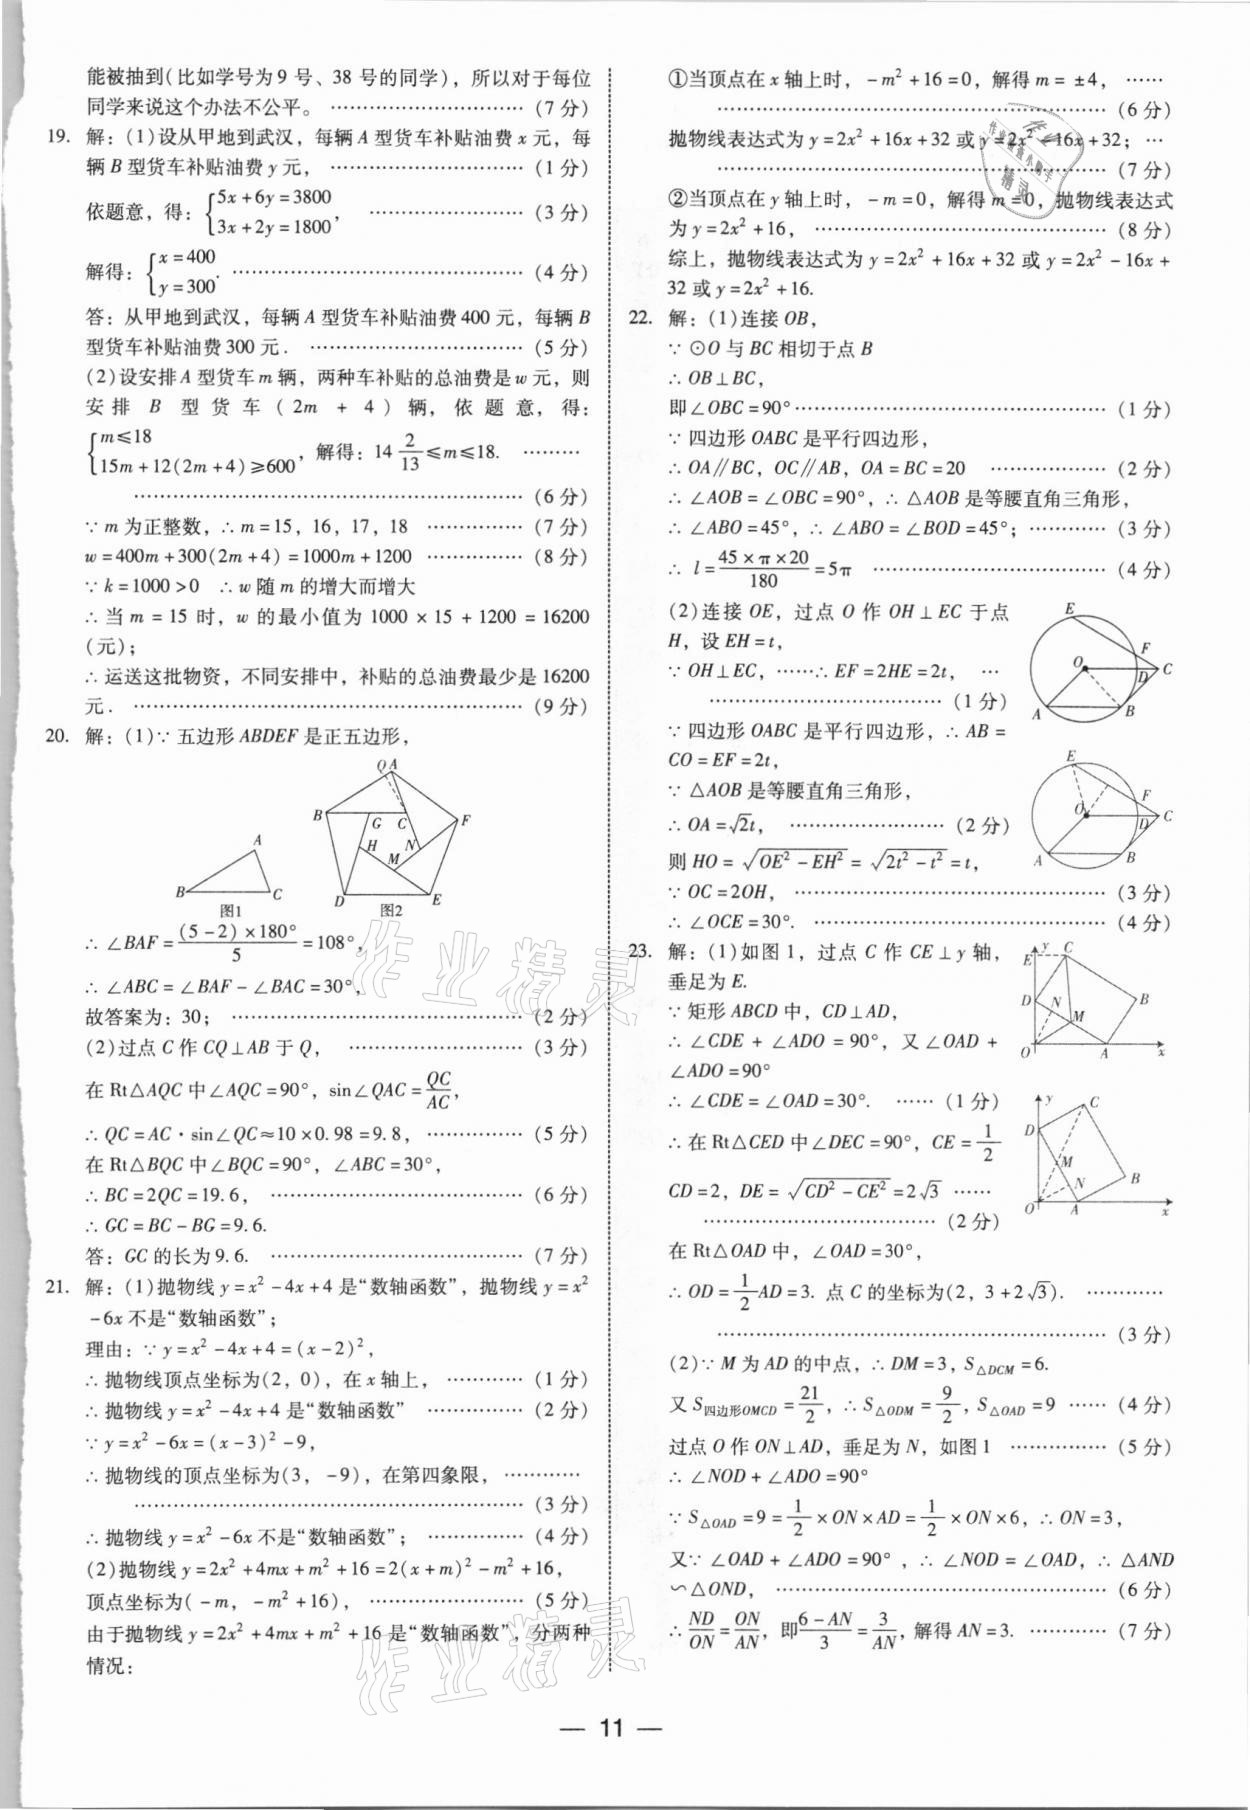 能被抽到(比如学号为9号、38号的同学)，所以对于每位
同学来说这个办法不公平。 ………………………… (7分)
19. 解：(1)设从甲地到武汉，每辆A型货车补贴油费x元，每
辆B型货车补贴油费y元， ………………………… (1分)
依题意，得：{5x+6y=3800
3x+2y=1800， ………………… (3分)
解得：{x=400
y=300. …………………………………… (4分)
答：从甲地到武汉，每辆A型货车补贴油费400元，每辆B
型货车补贴油费300元． ………………………… (5分)
(2)设安排A型货车m辆，两种车补贴的总油费是w元，则
安排B型货车(2m+4)辆，依题意，得：
{m≤18
15m+12(2m+4)≥600，解得：14 2/13≤m≤18. ………
………………………………………………… (6分)
∵m为正整数，∴m=15，16，17，18 …………… (7分)
w=400m+300(2m+4)=1000m+1200 …………… (8分)
∵k=1000>0 ∴w随m的增大而增大
∴当m=15时，w的最小值为1000×15+1200=16200
(元)；
∴运送这批物资，不同安排中，补贴的总油费最少是16200
元． ………………………………………………… (9分)
20. 解：(1)∵五边形ABDEF是正五边形，
A
B
C
图1
Q A
B
G
C
F
H
N
M
D
E
图2
∴∠BAF=(5-2)×180°/5=108°，
∴∠ABC=∠BAF-∠BAC=30°，
故答案为：30； …………………………………… (2分)
(2)过点C作CQ⊥AB于Q， …………………… (3分)
在Rt△AQC中∠AQC=90°，sin∠QAC=QC/AC，
∴QC=AC·sin∠QC≈10×0.98=9.8，…………… (5分)
在Rt△BQC中∠BQC=90°，∠ABC=30°，
∴BC=2QC=19.6，……………………………… (6分)
∴GC=BC-BG=9.6.
答：GC的长为9.6. ……………………………… (7分)
21. 解：(1)抛物线y=x²-4x+4是“数轴函数”，抛物线y=x²
-6x不是“数轴函数”；
理由：∵y=x²-4x+4=(x-2)²，
∴抛物线顶点坐标为(2，0)，在x轴上， ………… (1分)
∴抛物线y=x²-4x+4是“数轴函数” …………… (2分)
∵y=x²-6x=(x-3)²-9，
∴抛物线的顶点坐标为(3，-9)，在第四象限，…………
………………………………………………… (3分)
∴抛物线y=x²-6x不是“数轴函数”； …………… (4分)
(2)抛物线y=2x²+4mx+m²+16=2(x+m)²-m²+16，
顶点坐标为(-m，-m²+16)， …………………… (5分)
由于抛物线y=2x²+4mx+m²+16是“数轴函数”，分两种
情况：
①当顶点在x轴上时，-m²+16=0，解得m=±4， ……
………………………………………………… (6分)
抛物线表达式为y=2x²+16x+32或y=2x²-16x+32； …
………………………………………………… (7分)
②当顶点在y轴上时，-m=0，解得m=0，抛物线表达式
为y=2x²+16， …………………………………… (8分)
综上，抛物线表达式为y=2x²+16x+32或y=2x²-16x+
32或y=2x²+16.
22. 解：(1)连接OB，
∵⊙O与BC相切于点B
∴OB⊥BC，
即∠OBC=90°……………………………………… (1分)
∵四边形OABC是平行四边形，
∴OA∥BC，OC∥AB，OA=BC=20 ……………… (2分)
∴∠AOB=∠OBC=90°，∴△AOB是等腰直角三角形，
∴∠ABO=45°，∴∠ABO=∠BOD=45°；………… (3分)
∴l=45×π×20/180=5π …………………………… (4分)
(2)连接OE，过点O作OH⊥EC于点
H，设EH=t，
∵OH⊥EC，……∴EF=2HE=2t， …
…………………………… (1分)
∵四边形OABC是平行四边形，∴AB=
CO=EF=2t，
∵△AOB是等腰直角三角形，
∴OA=√2t， …………………… (2分)
则HO=√(OE²-EH²)=√(2t²-t²)=t，
∵OC=2OH，……………………………………… (3分)
∴∠OCE=30°. …………………………………… (4分)
E
F
O
D
C
A
B
E
F
O
D
C
A
B
23. 解：(1)如图1，过点C作CE⊥y轴，
垂足为E.
∵矩形ABCD中，CD⊥AD，
∴∠CDE+∠ADO=90°，又∠OAD+
∠ADO=90°
∴∠CDE=∠OAD=30°. …… (1分)
∴在Rt△CED中∠DEC=90°，CE=1/2
CD=2，DE=√(CD²-CE²)=2√3 ……
…………………………… (2分)
在Rt△OAD中，∠OAD=30°，
∴OD=1/2AD=3. 点C的坐标为(2，3+2√3). …………
………………………………………………… (3分)
y
E
C
D
N
B
M
O
A
x
y
C
D
M
B
N
O
A
x
(2)∵M为AD的中点，∴DM=3，S△DCM=6.
又S四边形OMCD=21/2，∴S△ODM=9/2，S△OAD=9 …… (4分)
过点O作ON⊥AD，垂足为N，如图1 …………… (5分)
∴∠NOD+∠ADO=90°
∵S△OAD=9=1/2×ON×AD=1/2×ON×6，∴ON=3，
又∵∠OAD+∠ADO=90°，∴∠NOD=∠OAD，∴△AND
∽△OND， ………………………………………… (6分)
∴ND/ON=ON/AN，即6-AN/3=3/AN，解得AN=3. ………… (7分)
— 11 —
作业精灵
作业精灵